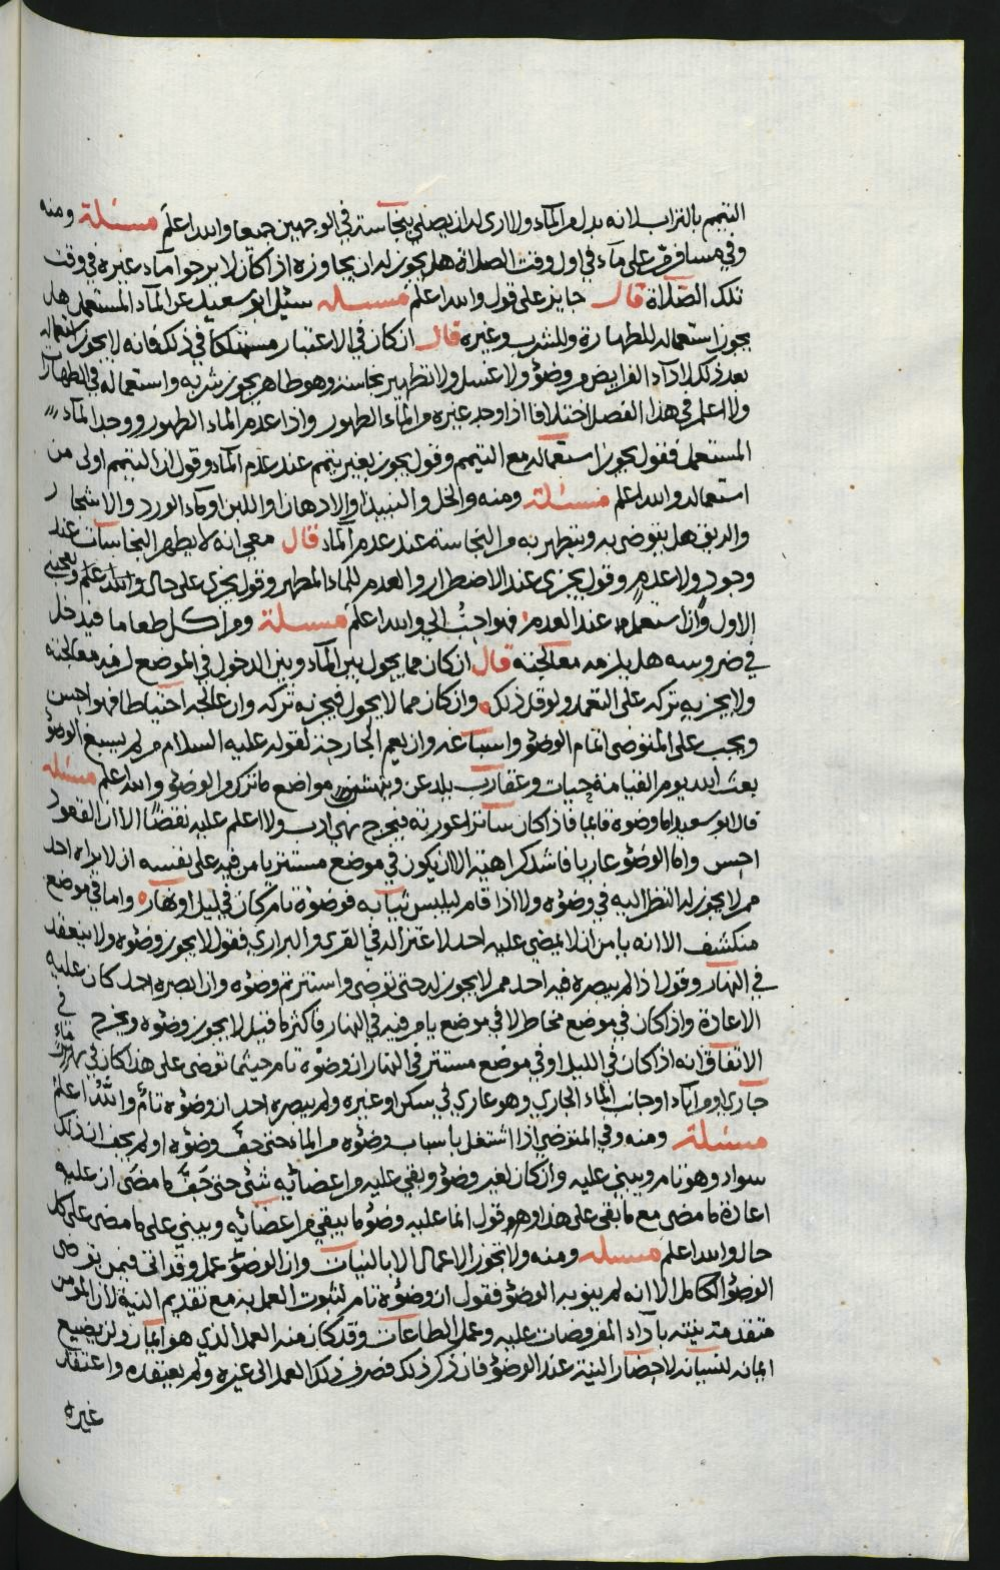 التيمم بالتراب لانه بدل من المآء ولا ارى له ان يصلي بنجاسة في الوجهين جميعا والله اعلم مسئلة ومنه
وفي مسافر مر على مآء في اول وقت الصلاة هل يجوز له ان يجاوزه اذا كان لا يرجوا مآء غيره في وقت
تلك الصلاة قال جايز على قول والله اعلم مسئله سئل ابو سعيد عن المآء المستعمل هل
يجوز استعماله للطهارة وللشرب وغيره قال ان كان في الاعتبار مستهلكا في ذلك فانه لا يجوز استعماله
بعد ذلك لادآء الفرايض من وضؤ ولا غسل ولا تطهير نجاسة وهو طاهر يجوز شربه واستعماله في الطهارات
ولا اعلم في هذا الفصل اختلافا اذا وجد غيره من المآء الطهور واذا عدم الماء الطهور ووجد المآء
المستعمل فقول يجوز استعماله مع التيمم وقول يجوز بغير تيمم عند عدم المآء وقول ان التيمم اولى من
استعماله والله اعلم مسئلة ومنه والخل والنبيذ والادهان واللبن وماء الورد والاشجار
والريق هل يتوضى به ويتطهر به من النجاسة عند عدم المآء قال معي انه لا يطهر النجاسات عند
وجود ولا عدم وقول يجزي عند الاضطرار والعدم للماء المطهر وقول يجزي على حال والله اعلم ويعجبني
الاول وان استعمله عند العدم فهو احب الي والله اعلم مسئلة ومن اكل طعاما فيدخل
في ضروسه هل يلزمه معالجته قال ان كان مما يحول بين المآء وبين الدخول في الموضع لزمه معالجته
ولا يجزيه تركه على التعمد ولو قل ذلك وان كان مما لا يحول فيجزيه تركه وان عالجه احتياطا فهو احسن
ويجب على المتوضى اتمام الوضؤ واسباغه وان يعم الجارحة لقوله عليه السلام من لم يسبغ الوضؤ
بعث الله يوم القيامة حيات وعقارب يلدغن وينهشن مواضع ما تركوا الوضؤ والله اعلم مسئله
قال ابو سعيد اما وضوه قائما فاذا كان ساترا عورته فيخرج نهي ادب ولا اعلم عليه نقضا الا ان القعود
احسن واما الوضؤ عاريا فاشد كراهية الا ان يكون في موضع مستتر يامن فيه على نفسه ان لا يراه احد
ممن لا يجوز له النظر اليه في وضؤه ولا اذا قام ليلبس ثيابه فوضؤه تام كان في ليل او نهار واما في موضع
منكشف الا انه يامن ان لا يمضي عليه احد لاعتزاله في القرى والبراري فقول لا يجوز وضؤه ولا ينعقد
في النهار وقول اذا لم يبصره فيه احد ممن لا يجوز له حتى توضى واستتر تم وضؤه وان ابصره احد كان عليه
الاعادة واذا كان في موضع مخاطر لا في موضع يامن فيه في النهار فاكثر ما قيل لا يجوز وضؤه ويخرج في
الاتفاق انه اذا كان في الليل او في موضع مستتر في النهار ان وضؤه تام حيثما توضى على هذا كان في
جاري او مآء او جانب المآء الجاري وهو عاري في سكن او غيره ولم يبصره احد ان وضؤه تام والله اعلم
مسئلة ومنه وفي المتوضي اذا اشتغل باسباب وضؤه من الماء حتى جف وضؤه او لم يجف ان ذلك
سواء وهو تام ويبني عليه وان كان لغير وضؤ وبقي عليه من اعضائه شئ حتى جف ما مضى ان عليه
اعادة ما مضى مع ما بقي على هذا وهو قول انما عليه وضؤ ما يبقى من اعضائه ويبني على ما مضى على كل
حال والله اعلم مسئله ومنه ولا تجوز الاعمال الا بالنيات وان الوضؤ عمل وقد اتى فيمن توضى
الوضؤ الكامل الا انه لم ينو به الوضؤ فقول ان وضؤه تام لثبوت العمل به مع تقديم النية لان المومن
متقدمة نيته باداء المفروضات عليه وعمل الطاعات وقد كان منه العمل الذي هو ايمان ولن يضيع
ايمانه لنسيانه لاحضار النية عند الوضؤ فان ذكر ذلك فصرف ذلك العمل الى غيره ولم يعتقده واعتقد
غيره